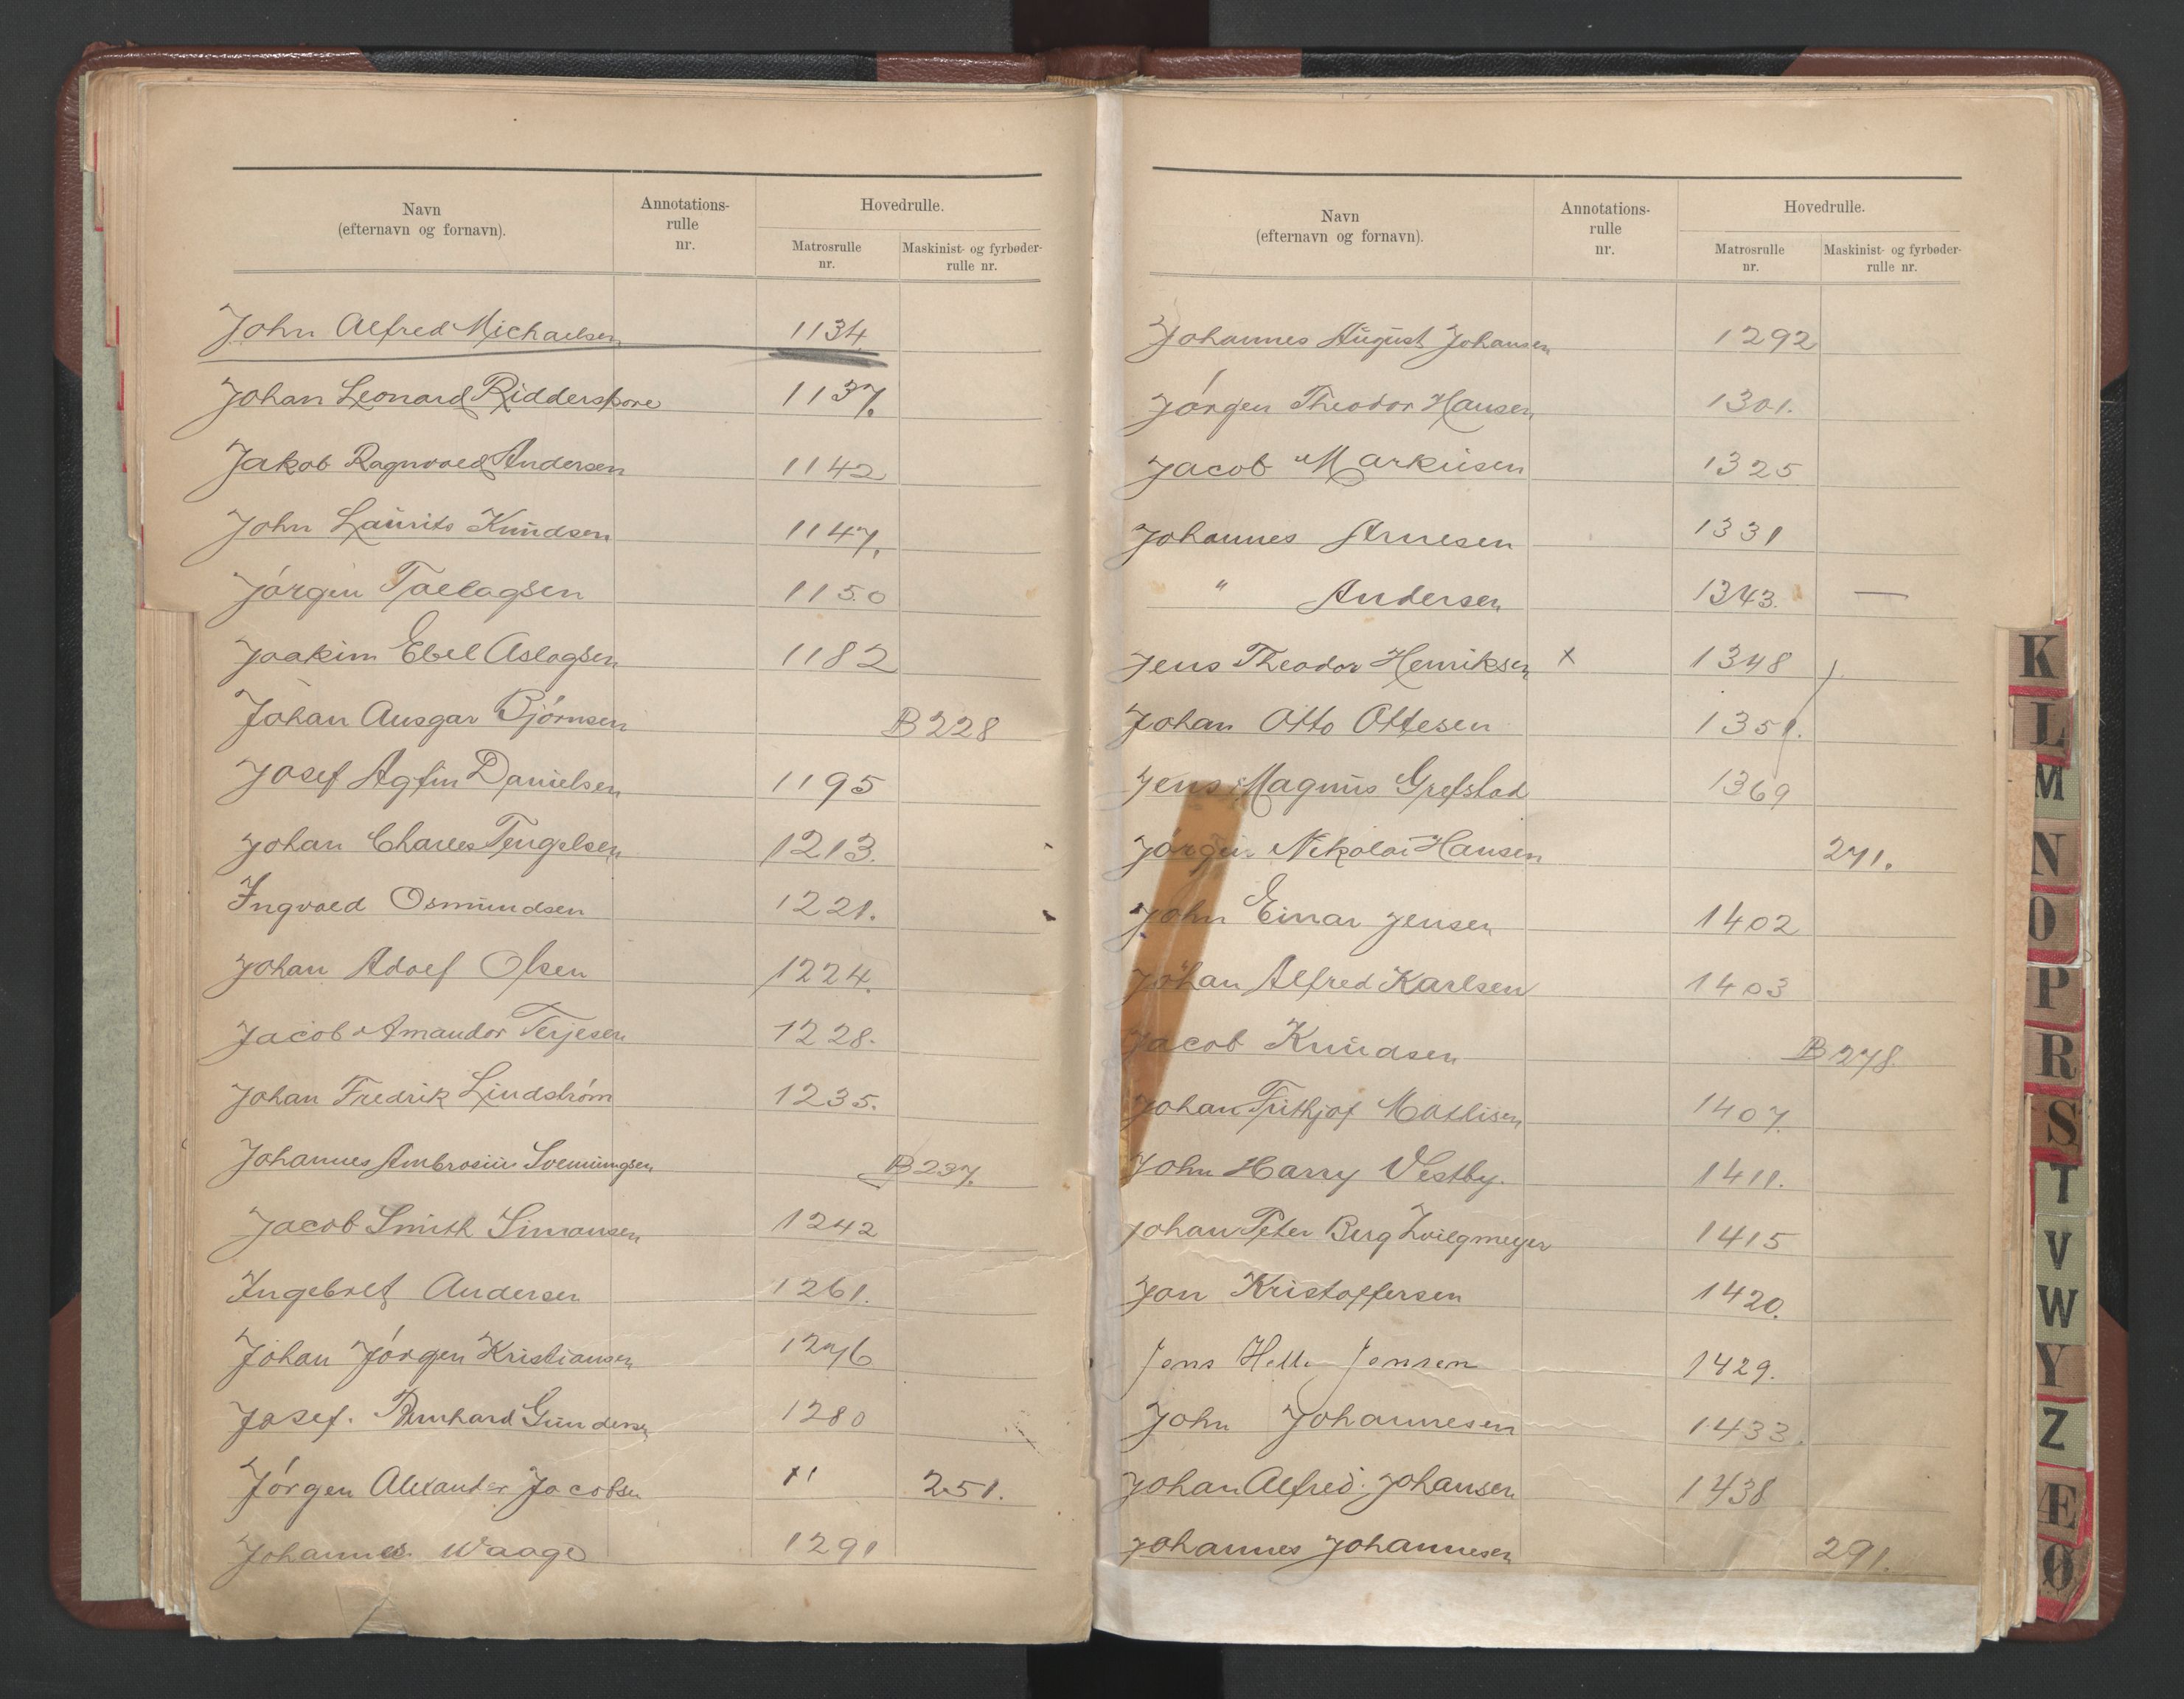 Navn
(efternavn og fornavn).
Annotations-
rulle
nr.
Hovedrulle.
Matrosrulle
nr.
Maskinist- og fyrbøder-
rulle nr.
John Alfred Michaelsen 1134
Johan Leonard Ridderskore 1137.
Jakob Ragnvald Andersen 1142
John Laurits Knudsen 1147.
Jørgin Taelagsen 1150
Joakim Ebel Aslagsen 1182
Johan Ansgar Bjørnsen B 228
Josef Agfin Danielsen 1195
Johan Charles Tengelsen 1213.
Ingvald Osmundsen 1221.
Johan Adolf Olsen 1224.
Jacob Amandor Terjesen 1228.
Johan Fredrik Lindstrøm 1235.
Johannes Ambrosius Svenningsen B 237.
Jacob Smith Simonsen 1242
Ingebret Andersen 1261.
Johan Jørgen Kristiansen 1276
Josef. Bernhard Gundersen 1280
Jørgen Alexander Jacobsen 251.
Johannes Waage 1291
Navn
(efternavn og fornavn).
Annotations-
rulle
nr.
Hovedrulle.
Matrosrulle
nr.
Maskinist- og fyrbøder-
rulle nr.
Johannes August Johansen 1292
Jørgen Theodor Hansen 1301.
Jacob Markusen 1325
Johannes Arnesen 1331
" Andersen 1343. —
Jens Theodor Henriksen x 1348
Johan Otto Ottesen 1351.
Jens Magnus Grefstad 1369
Jørgen Nikolai Hansen 271.
John Einar Jensen 1402
Johan Alfred Karlsen 1403
Jacob Knudsen B 278.
Johan Frithjof Mathisen 1407.
John Harry Vestby. 1411.
Johan Peter Berg Zwilgmeyer 1415
Jon Kristoffersen 1420.
Jens Helle Jensen 1429.
John Johannesen 1433.
Johan Alfred Johansen 1438
Johannes Johannesen 291.
K
L
M
N
O
P
R
S
T
V
W
Y
Z
Æ
Ø